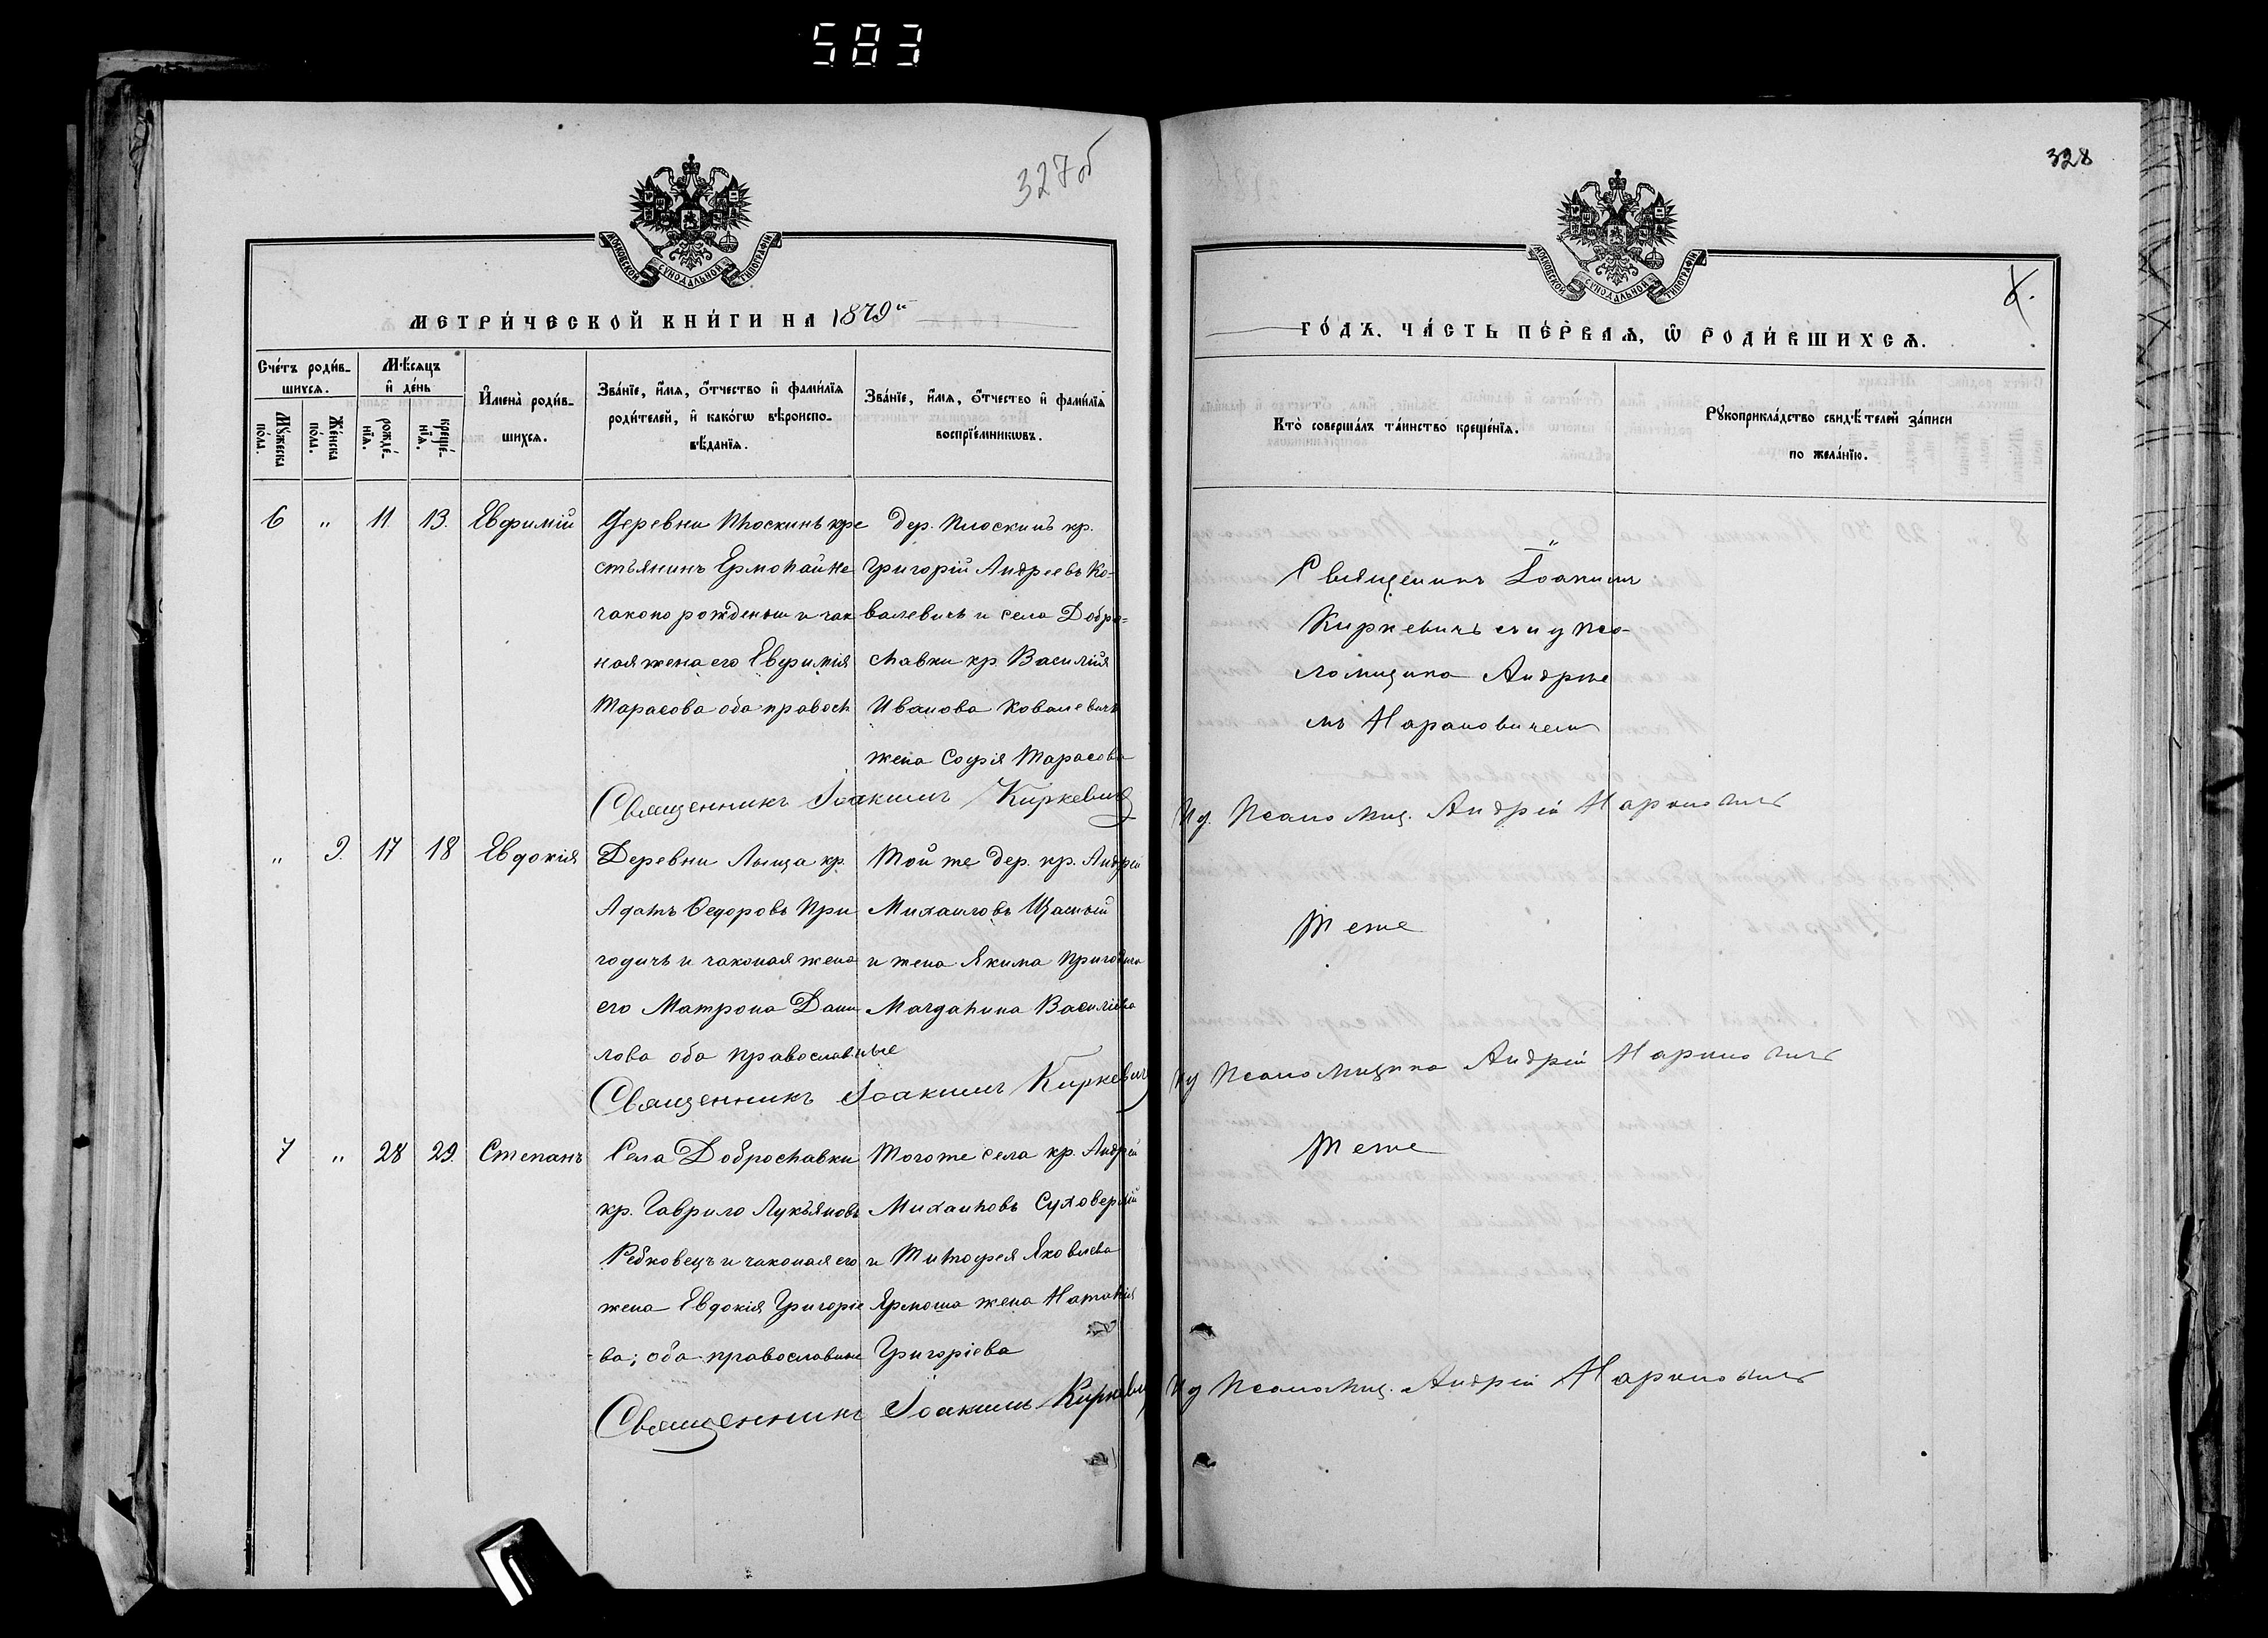 583
327об
328
МОСКОВСКОЙ СѴНОДАЛЬНОЙ ТИПОГРАФІИ
МОСКОВСКОЙ СѴНОДАЛЬНОЙ ТИПОГРАФІИ
МЕТРИ́ЧЕСКОЙ КНИ́ГИ НА 1879й
ГО́ДЪ. ЧА́СТЬ ПЕ́РВАѦ, Ѡ҆ РОДИ́ВШИХСѦ.
Сче́тъ роди́в-
шихсѧ.
Мꙋ́жеска по́ла.
Же́нска по́ла.
Мѣ́сяцъ
и҆ де́нь
рожде́-нїѧ.
креще́-нїѧ.
И҆мена̀ роди́в-
шихсѧ.
Зва́нїе, и҆́мѧ, ѻ҆́тчество и҆ фами́лїѧ
роди́телей, и҆ како́гѡ вѣроиспо-
вѣ́данїѧ.
Зва́нїе, и҆́мѧ, ѻ҆́тчество и҆ фами́лїѧ
воспрїе́мникѡвъ.
Кто̀ соверша́лъ та́инство креще́нїѧ.
Рꙋкоприкла́дство свидѣ́телей за́писи
по жела́нїю.
6 " 11. 13. Евфимій
Деревни Плоскинь кре
стьянинъ Ермолай не
законо рожденый и зак
ная жена его Евфимія
Тарасова оба правосл
дер. Плоскинь кр.
Григорій Андреевъ Ко-
валевичъ и села Добро-
славки кр. Василія
Иванова Ковалевича
жена Софія Тарасова
Священникъ Іоакимъ
Киркевичъ съ и д псо-
ломщика Андрее
мъ Нарановичемъ
Священникъ Іоакимъ Киркевичъ
И д. Псаломщ. Андрей
" 9. 17 18 Евдокія
Деревни Лыща кр.
Адамъ Ѳедоровъ При
годичъ и законая жена
его Матрона Дани
лова оба православные
Той же дер. кр. Андрей
Михаиловъ Щасный
и жена Якима Пригодича
Магдалина Василіева
Теже
Священникъ Іоакимъ Киркевичъ
И д Псаломщика Андрей
7 " 28 29. Степанъ
Села Доброславки
кр. Гаврило Лукьяновъ
Рубковецъ и законая его
жена Евдокія Григоріе
ва; оба православные
Тогоже села кр. Андрей
Михаиловъ Суховерхій
и Тимофея Яковлева
Ярмоша жена Наталія
Григоріева
Теже
Священникъ Іоакимъ Киркевичъ
И д Псаломщ. Андрей